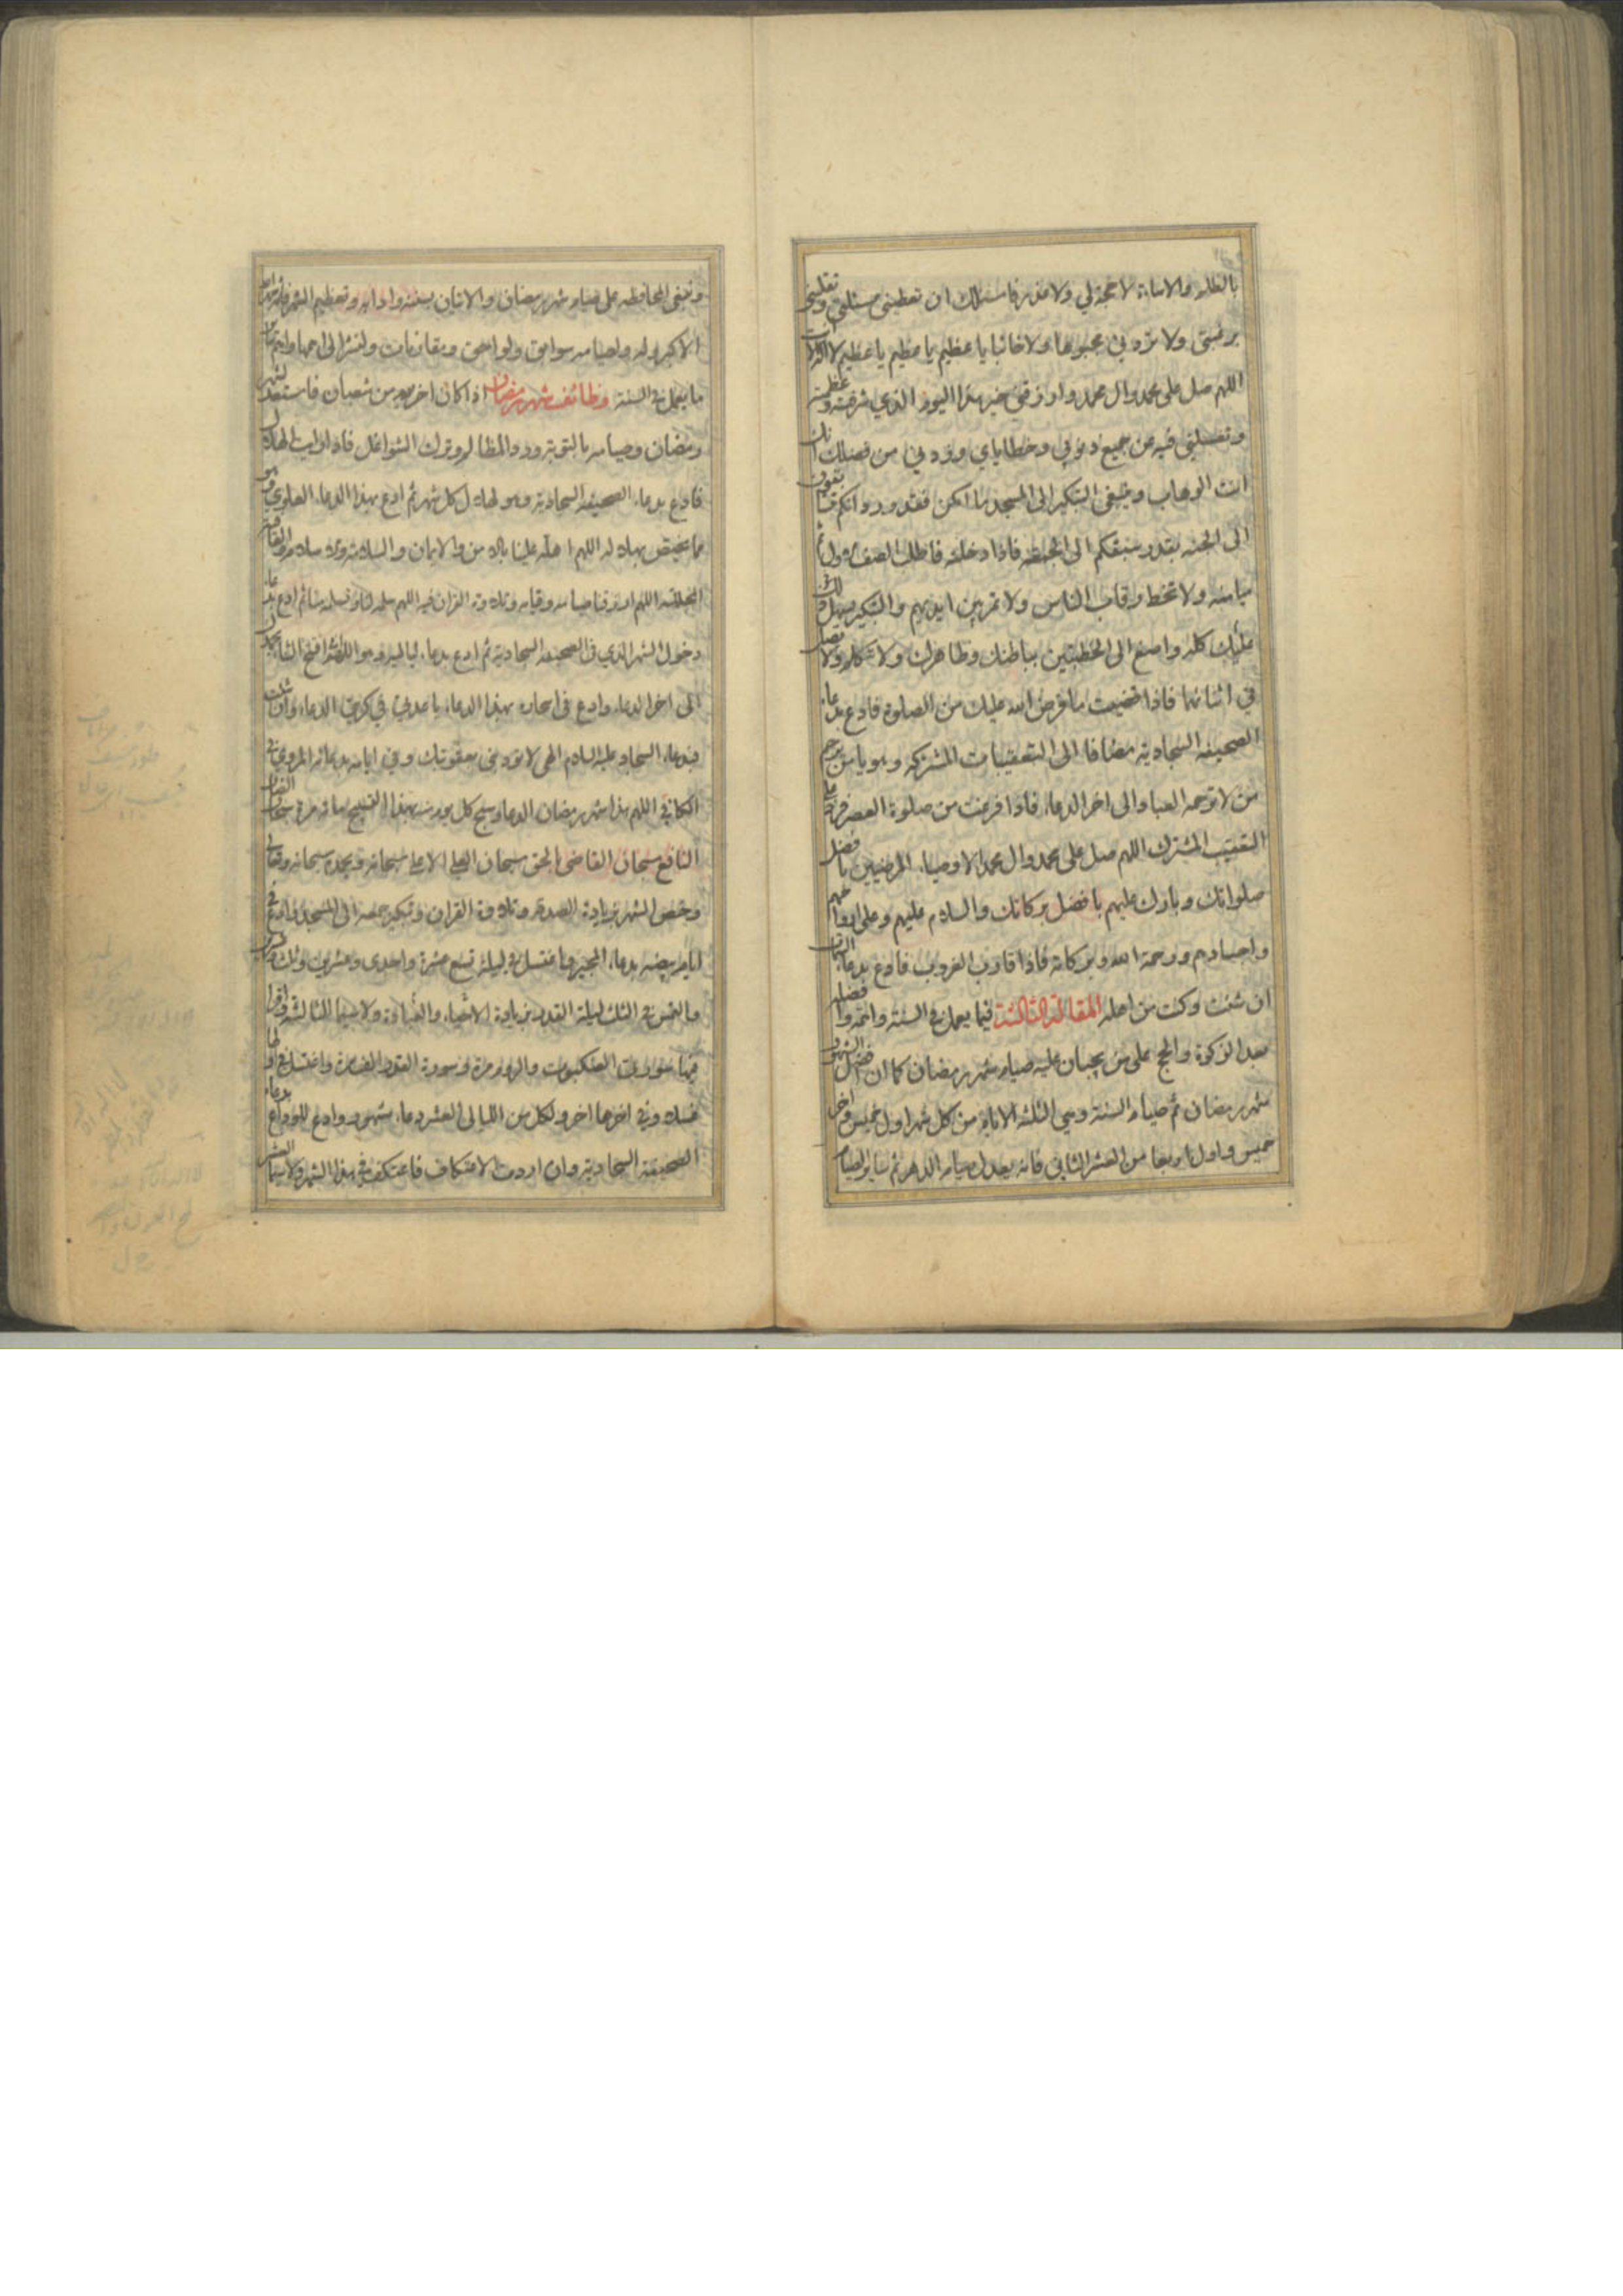 بالظلم والاساءة لا حجة لي ولا عذر فاسئلك ان تعطيني مسئلتي وتقلبني
برغبتي ولا تردني مجبوها ولا خائبا يا عظيم يا عظيم يا عظيم لا اله الا انت
اللهم صل على محمد وال محمد وارزقني خير هذا اليوم الذي شرفته وعظمته
وتغسلني فيه من جميع ذنوبي وخطاياي وزدني من فضلك انك
انت الوهاب وينبغي التبكير الى المسجد ما امكن فقد ورد انكم تتسابقون
الى الجنه بقدر سبقكم الى الجمعه فاذا دخلته فاطلب الصف الاول ثم
ميامنه ولا تخط رقاب الناس ولا تمر بين ايديهم والتبكير يسهل
عليك كله واصغ الى الخطبتين بباطنك وظاهرك ولا تتكلم ولا تصل
في اثنائهما فاذا قضيت ما فرض الله عليك من الصلوة فادع بدعاء
الصحيفه السجاديه مضافا الى التعقيبات المشتركه وهو يا من يرحم
من لا يرحمه العباد الى اخر الدعاء فاذا فرغت من صلوة العصر فزد على
التعقيب المشترك اللهم صل على محمد وال محمد الاوصياء المرضيين بافضل
صلواتك وبارك عليهم بافضل بركاتك والسلام عليهم وعلى ارواحهم
واجسادهم ورحمة الله وبركاته فاذا قارب الغروب فادع بدعاء السمات
ان شئت وكنت من اهله المقالة الثالثة فيما يعمل في السنة وانه وافضلها
بعد الزكوة والحج على من يجبان عليه صيام شهر رمضان كما ان افضل الشهور
شهر رمضان ثم صيام السنة وهي الثلثة الايام من كل شهر اول خميس واخر
خميس واول اربعا من العشر الثاني فانه يعدل صيام الدهر ثم ساير الصيام
وينبغي المحافظه على صيام شهر رمضان والاتيان بسننه وادابه وتعظيم الشهر فانه شهر الله
الاكبر وله ولصيامه سوابق ولواحق ومقارنات ولنشر الى اهمها واهم
ما يعمل في السنة وظائف شهر رمضان اذا كان اخر يوم من شعبان فاستعد لشهر
رمضان وصيامه بالتوبة ورد المظالم وترك الشواغل فاذا رايت الهلال
فادع بدعاء الصحيفه السجادية وهو لهلال كل شهر ثم ادع بهذا الدعاء العلوي وهو
مما يختص بهلاله اللهم اهله علينا بالامن والايمان والسلامة والاسلام والعافية
المجللة اللهم ارزقنا صيامه وقيامه وتلاوة القران فيه اللهم سلمه لنا وتسلمه منا ثم ادع بدعاء
دخول الشهر الذي في الصحيفه السجادية ثم ادع بدعاء لياليه وهو اللهم اني افتتح الثناء بحمدك
الى اخر الدعاء وادع في اسحاره بهذا الدعاء يا عدتي في كربتي الدعاء وان شئت
فبدعاء السجاد عليه السلام الهي لا تؤدبني بعقوبتك وفي ايامه بدعائه المروي في
الكافي اللهم هذا شهر رمضان الدعا وسبح كل يوم منه بهذا التسبيح مائة مرة سبحان الضار
النافع سبحان القاضي بالحق سبحان العلي الاعلى سبحانه وبحمده سبحانه وتعالى
وخص الشهر بزيادة الصدقة وتلاوة القران وتبكير جمعه الى المسجد وادع في
ايام بيضه بدعاء المجير واغتسل في ليلة تسع عشرة واحدى وعشرين وثلث وعشرين
والتمس في الثلث ليلة القدر بزيادة الاحياء والعبادة ولا سيما الثالثة واقرا
فيها سورتي العنكبوت والروم مرة وسورة القدر الف مرة واغتسل في اولها
غسلا وفي اخرها اخر ولكل من الليالي العشر دعاء مشهور وادع للوداع بدعاء
الصحيفة السجادية وان اردت الاعتكاف فاعتكف في هذا الشهر ولا سيما العشر